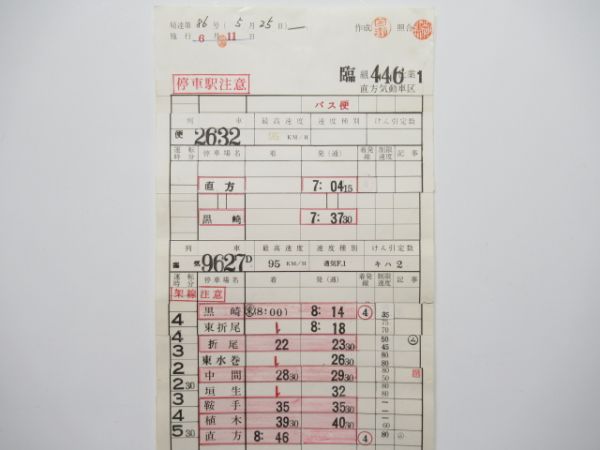 達第 86 号 ( 5 月 25 日 )
施行 6 月 11 日
作成 照合
停車駅注意
臨 組 446 仕業 1
直方気動車区
バス便
列 車 最高速度 速度種別 けん引定数
便 2632 95 KM/H
運転時分 停車場名 着 発(通) 着発線 制限速度 記事
直方 7: 04 15
黒崎 7: 37 30
列 車 最高速度 速度種別 けん引定数
臨 気 9627D 95 KM/H 通気F.1 キハ 2
運転時分 停車場名 着 発(通) 着発線 制限速度 記事
架線注意
黒崎 (8:00) 8: 14 ④ 35
4 東折尾 8: 18 75 70
4 折尾 22 23 30 50 45
3 東水巻 26 30 80 80
2 中間 28 30 29 30 80 50
2 30 垣生 32 80
3 鞍手 35 35 30
4 植木 39 30 40 30 60
5 30 直方 8: 46 ④ 80